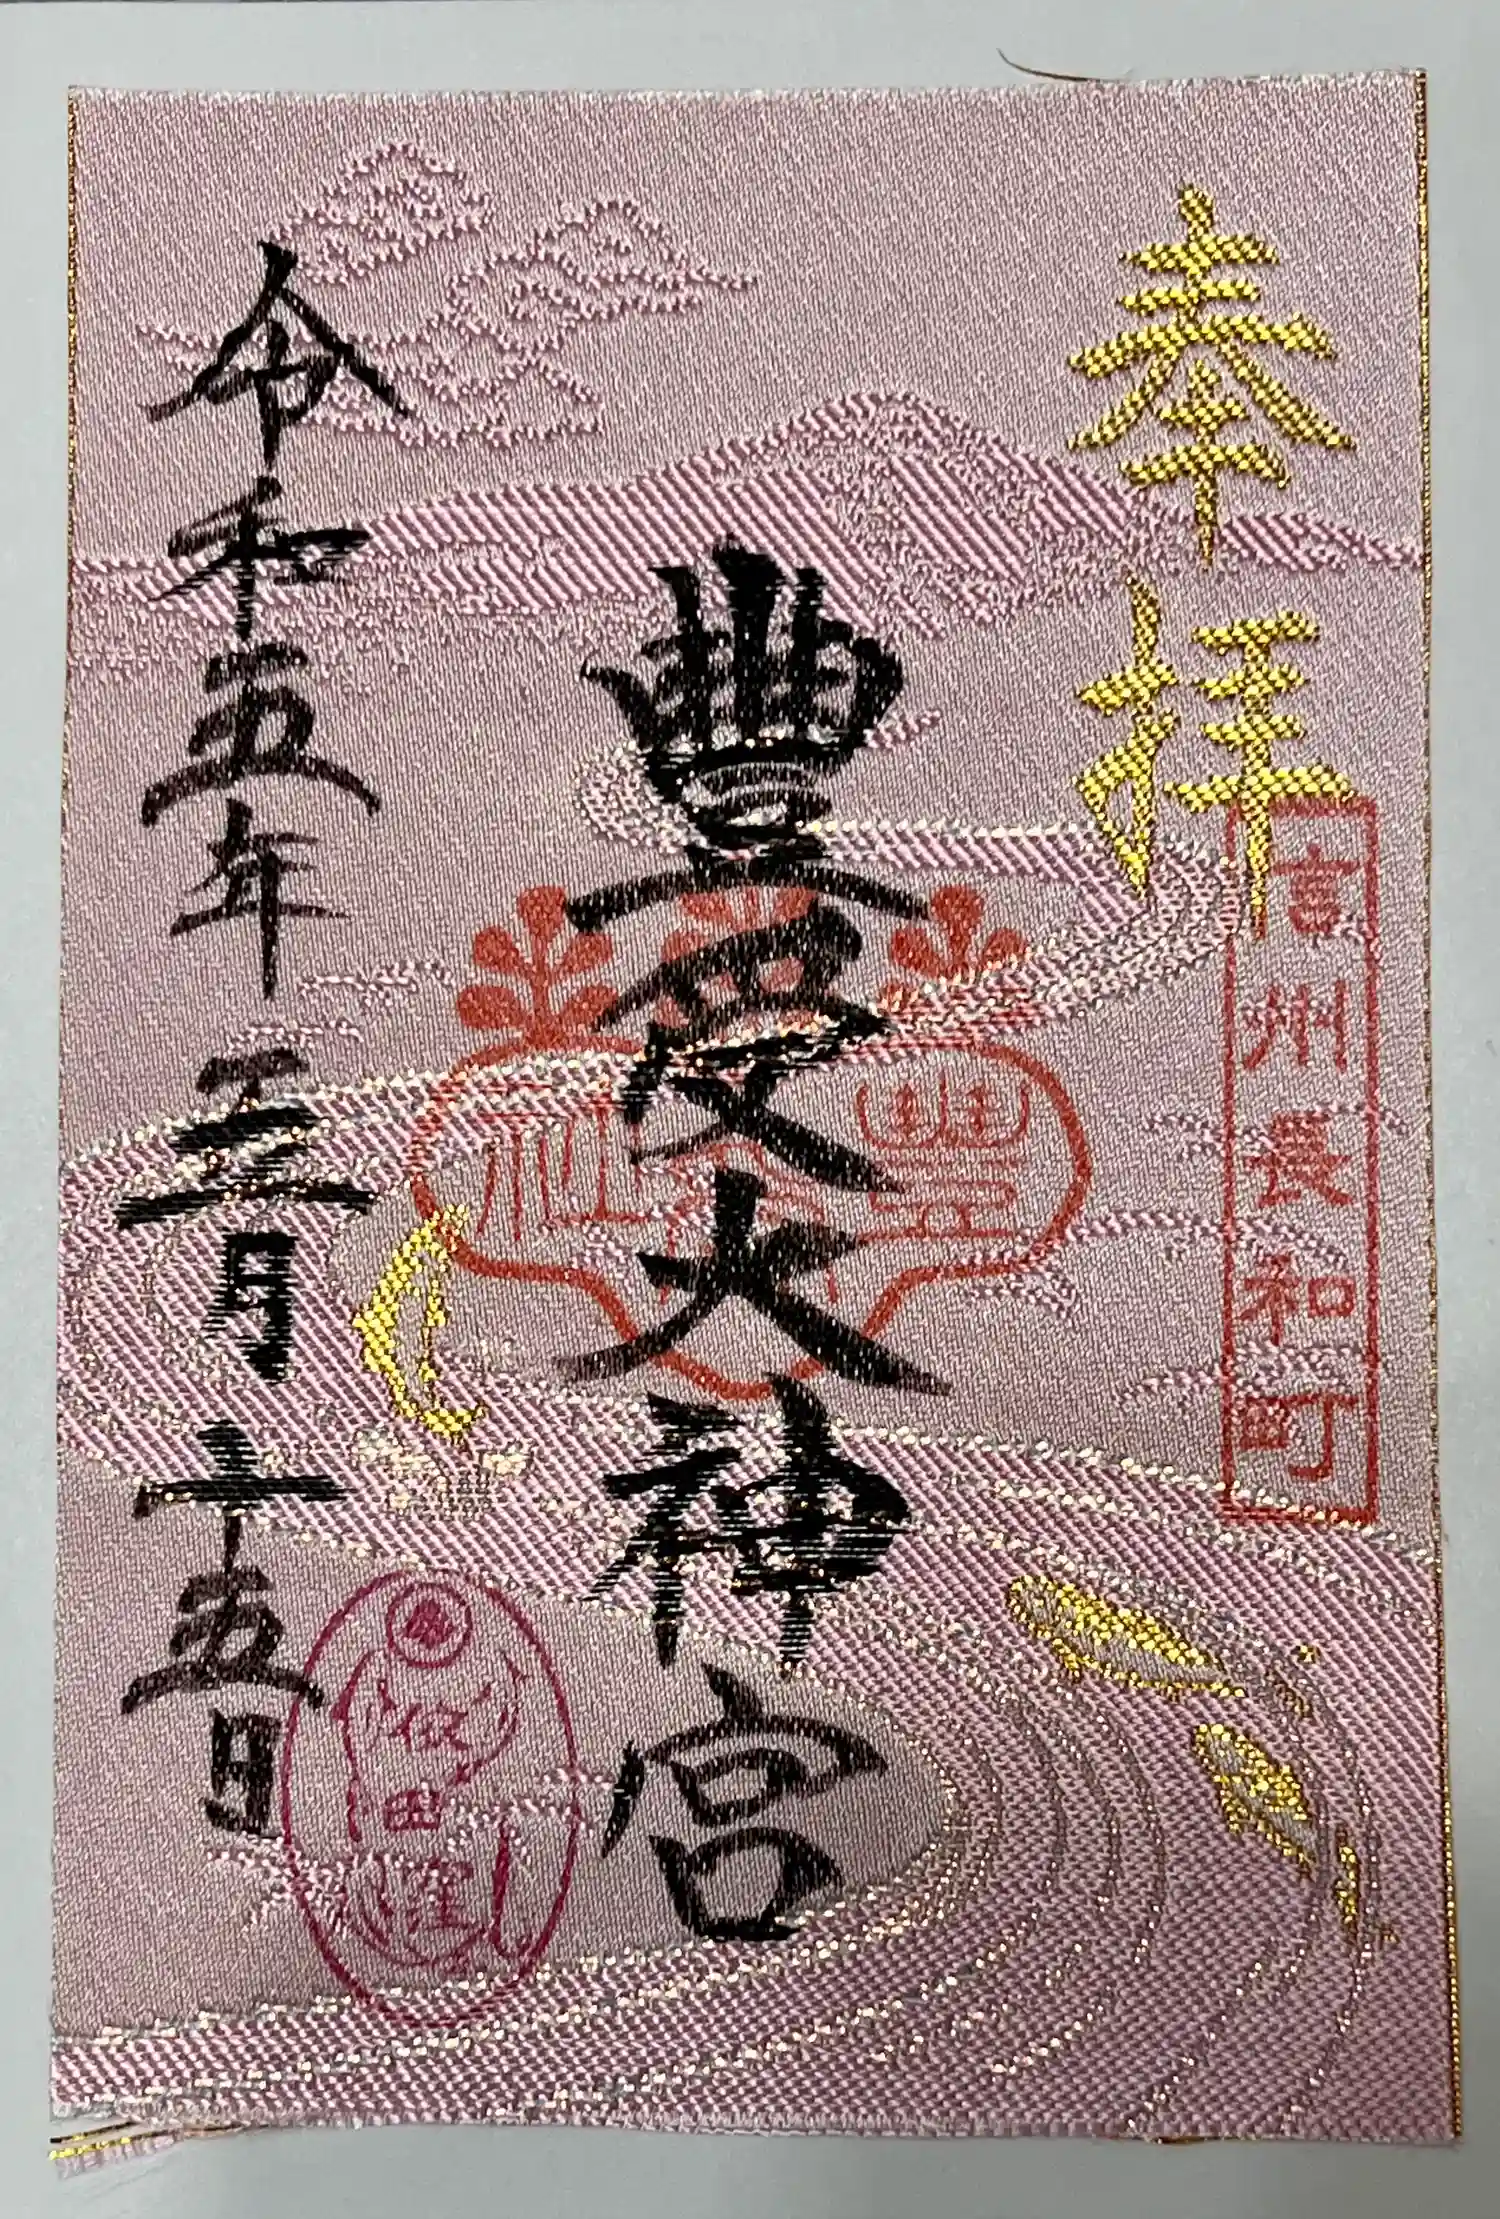 奉拝
信州長和町
豐受大神宮
令和五年三月十五日